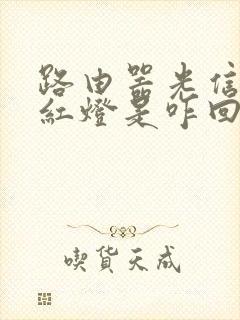 路由器光信
紅燈是咋回
喫貨天成